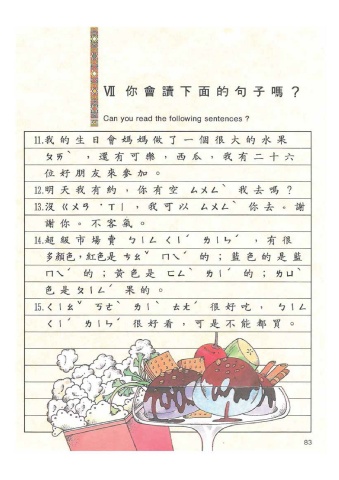 Ⅶ 你會讀下面的句子嗎？
Can you read the following sentences ?
11.我的生日會媽媽做了一個很大的水果
ㄆㄞˋ，還有可樂，西瓜，我有二十六
位好朋友來參加。
12.明天我有約，你有空 ㄙㄨㄥˋ 我去嗎？
13.沒 ㄍㄨㄢ ㄒㄧ，我可以 ㄙㄨㄥˋ 你去。謝
謝你。不客氣。
14.超級市場賣 ㄅㄧㄥ ㄑㄧˊ ㄌㄧㄣˊ，有很
多顏色，紅色是 ㄘㄠˇ ㄇㄟˊ 的；藍色的是藍
ㄇㄟˊ 的；黃色是 ㄈㄥˋ ㄌㄧˊ 的；ㄌㄩˋ
色是 ㄆㄧㄥˊ 果的。
15.ㄑㄧㄠˇ ㄎㄜˋ ㄌㄧˋ ㄊㄤˊ 很好吃，ㄅㄧㄥ
ㄑㄧˊ ㄌㄧㄣˊ 很好看，可是不能都買。
83